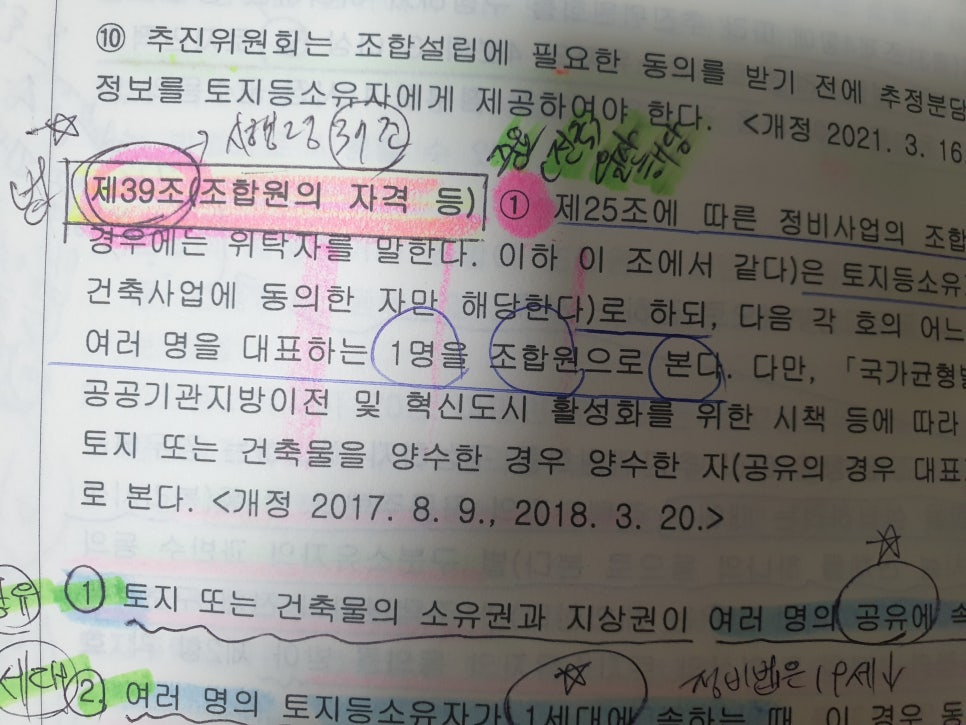 ⑩ 추진위원회는 조합설립에 필요한 동의를 받기 전에 추정분담
정보를 토지등소유자에게 제공하여야 한다. <개정 2021. 3. 16
시행령 37조
법
제39조(조합원의 자격 등) ① 제25조에 따른 정비사업의 조합
경우에는 위탁자를 말한다. 이하 이 조에서 같다)은 토지등소유
건축사업에 동의한 자만 해당한다)로 하되, 다음 각 호의 어느
여러 명을 대표하는 1명을 조합원으로 본다. 다만, 「국가균형발
공공기관지방이전 및 혁신도시 활성화를 위한 시책 등에 따라
토지 또는 건축물을 양수한 경우 양수한 자(공유의 경우 대표
로 본다. <개정 2017. 8. 9., 2018. 3. 20.>
공유 1 토지 또는 건축물의 소유권과 지상권이 여러 명의 공유에 속
정비법은 19세↓
세대 2. 여러 명의 토지등소유자가 1세대에 속하는 때. 이 경우 동